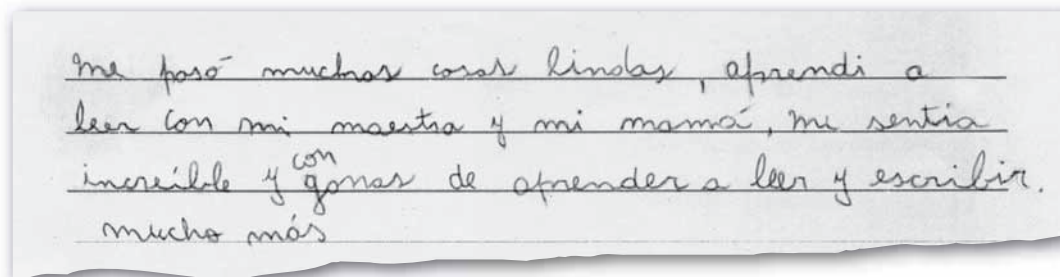 me pasó muchas cosas lindas, aprendi a
leer con mi maestra y mi mamá, me sentia
increíble y con ganas de aprender a leer y escribir.
mucho más